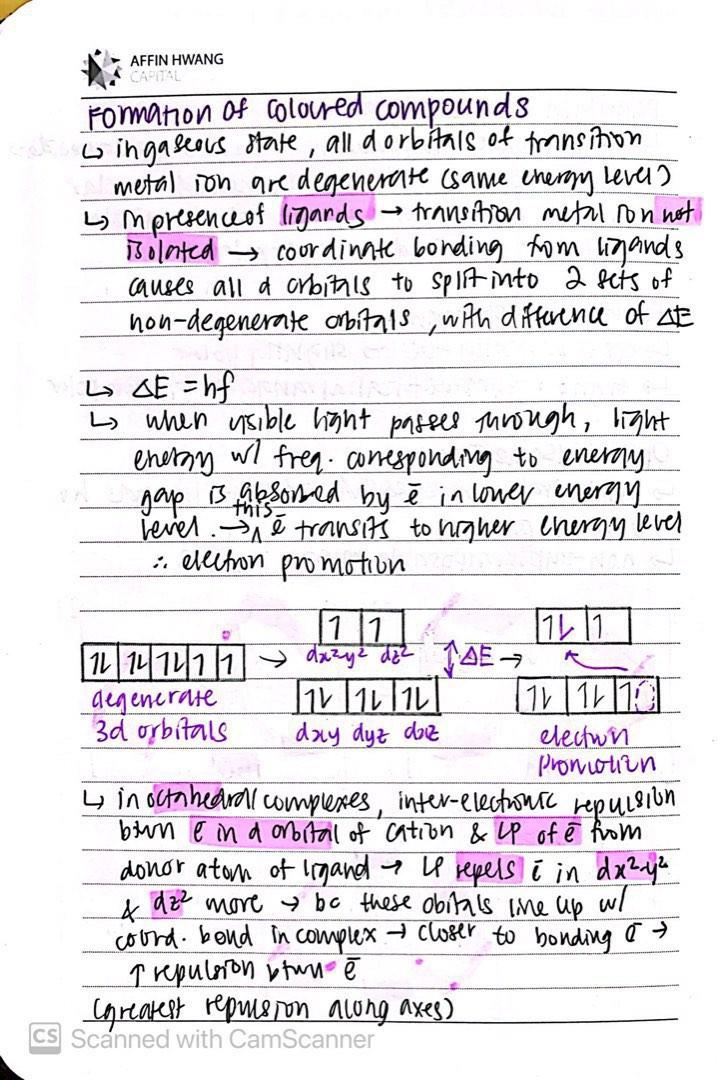 AFFIN HWANG
CAPITAL
Formation of coloured compounds
↳ in gaseous state, all d orbitals of transition
metal ion are degenerate (same energy level)
↳ in presence of ligands → transition metal ion not
isolated → coordinate bonding from ligands
causes all d orbitals to split into 2 sets of
non-degenerate orbitals, with difference of ΔE
↳ ΔE = hf
↳ when visible light passes through, light
energy w/ freq. corresponding to energy
gap is absorbed by ē in lower energy
level. → this ē transits to higher energy level
∴ electron promotion
1 1
1⇂ 1
1⇂ 1⇂ 1⇂ 1 1 → dx²y² dz² ↕ΔE →
degenerate 1⇂ 1⇂ 1⇂ 1⇂ 1⇂ 1
3d orbitals dxy dyz dxz electron
promotion
↳ in octahedral complexes, inter-electronic repulsion
btwn ē in d orbital of cation & LP of ē from
donor atom of ligand → LP repels ē in dx²-y²
& dz² more → bc these obitals line up w/
coord. bond in complex → closer to bonding ē →
↑ repulsion btwn ē
(greatest repulsion along axes)
CS Scanned with CamScanner